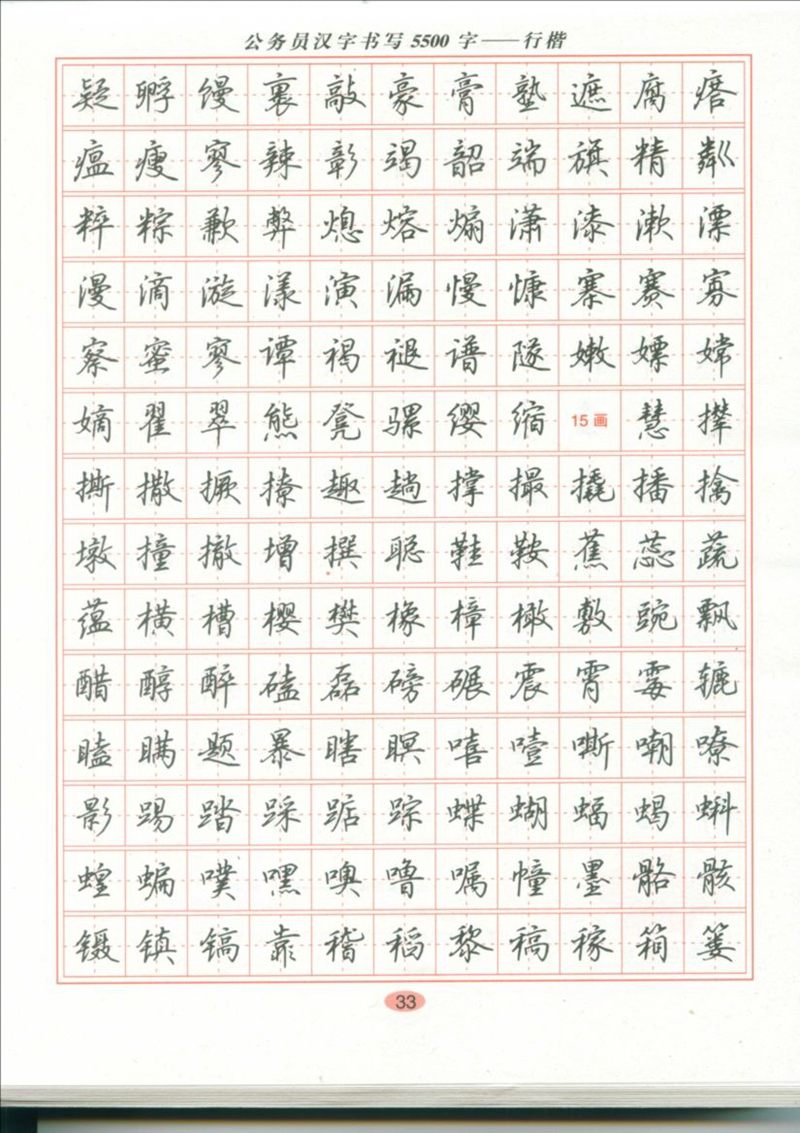 公务员汉字书写 5500 字——行楷
疑 孵 缦 裹 敲 豪 膏 塾 遮 腐 瘩
瘟 瘦 寥 辣 彰 竭 韶 端 旗 精 粼
粹 粽 歉 弊 熄 熔 煽 潇 漆 漱 漂
漫 滴 漩 漾 演 漏 慢 慷 寨 赛 寡
察 蜜 寥 谭 褐 褪 谱 隧 嫩 嫖 嫦
嫡 翟 翠 熊 凳 骡 缨 缩 15 画 慧 撵
撕 撒 撅 撩 趣 趟 撑 撮 撬 播 擒
墩 撞 撤 增 撰 聪 鞋 鞍 蕉 蕊 蔬
蕴 横 槽 樱 樊 橡 樟 橄 敷 豌 飘
醋 醇 醉 磕 磊 磅 碾 震 霄 霉 辘
瞌 瞒 题 暴 瞎 瞑 嘻 噎 嘶 嘲 嘹
影 踢 踏 踩 踞 踪 蝶 蝴 蝠 蝎 蝌
蝗 蝙 噗 嘿 噢 噜 嘱 幢 墨 骼 骸
镊 镇 镐 靠 稽 稻 黎 稿 稼 箱 篓
33